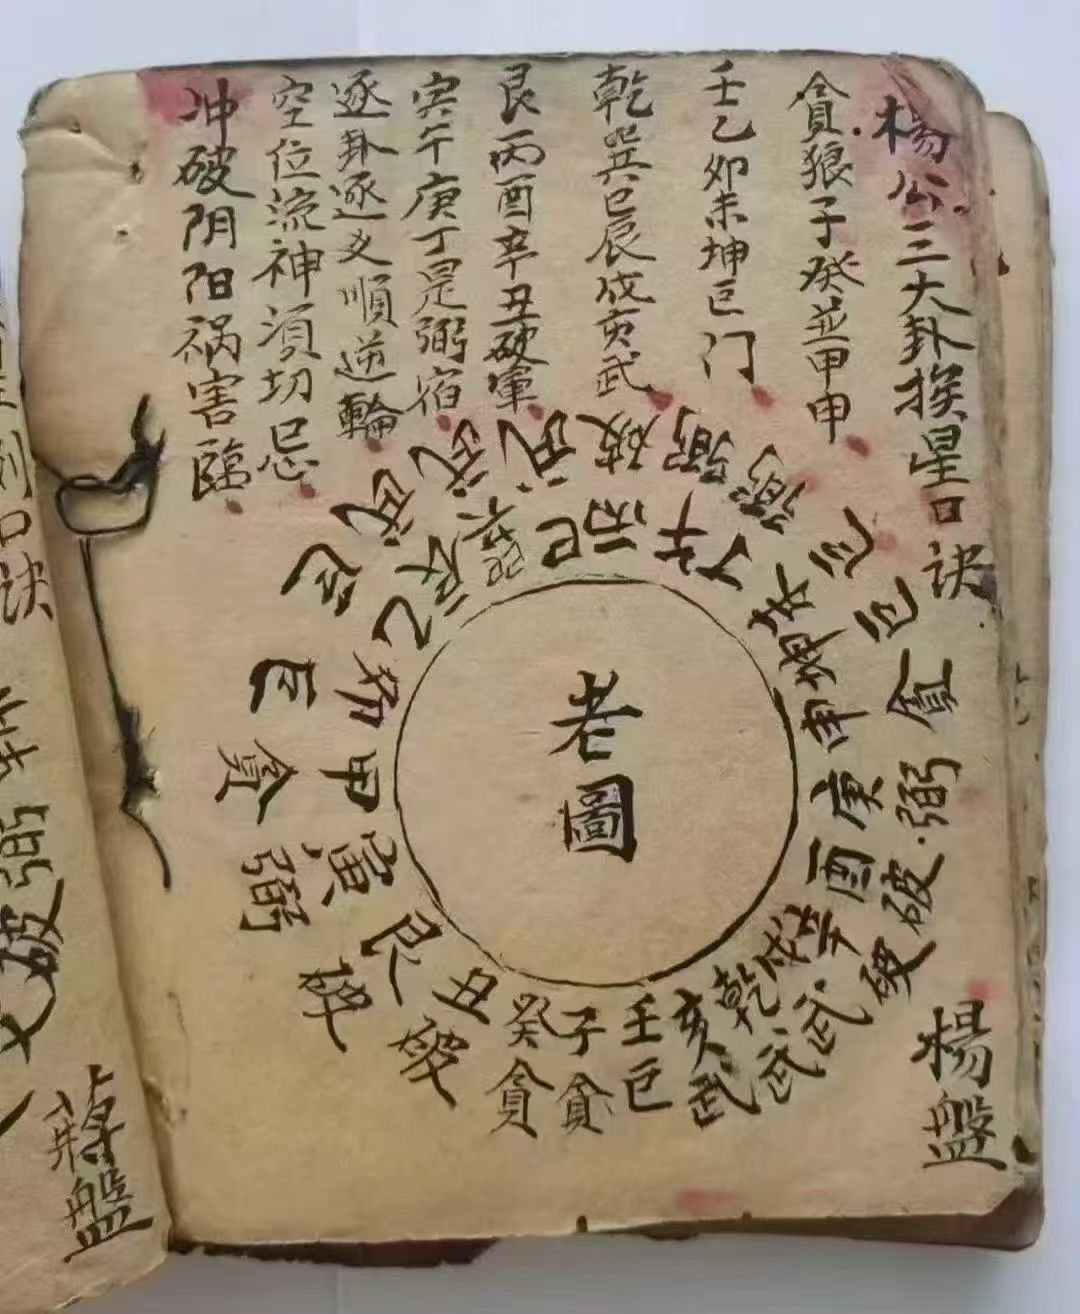 楊公三大卦挨星口诀
貪狼子癸並甲申
壬乙卯未坤巨门
乾巽巳辰戌亥武
艮丙酉辛丑破軍
寅午庚丁是弼宿
逐卦逐爻順逆輪
空位流神須切忌
冲破阴阳祸害臨
老圖
壬子癸丑艮寅甲卯乙辰巽巳丙午丁未坤申庚酉辛戌乾亥
巨貪貪破破弼貪巨巨武武武破弼弼巨巨貪弼破破武武武
楊盤
口诀
破弼
蔣盤